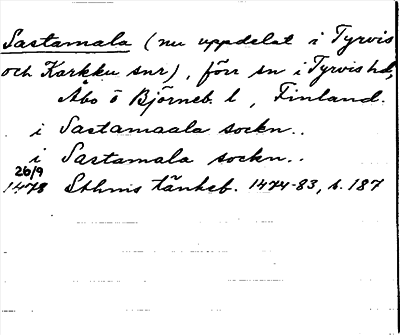 Sastamala (nu uppdelat i Tyrvis
och Karkku snr), förr sn i Tyrvis hd,
Åbo o Björneb. l, Finland.
i Sastamaala sockn..
i Sastamala sockn..
26/9
1478 Sthms tänkeb. 1474-83, s. 187